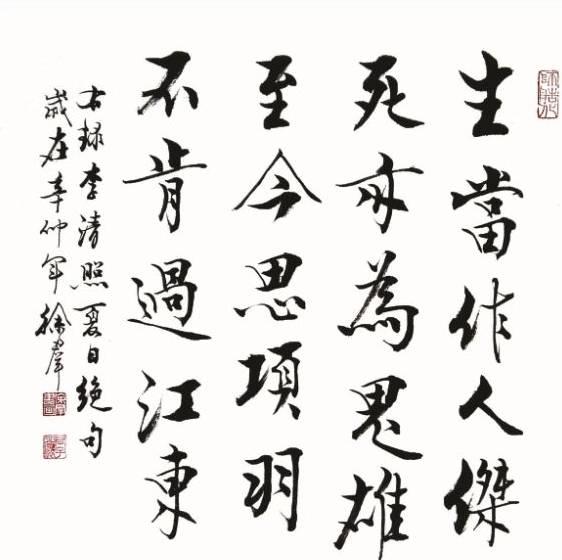 生當作人傑
死亦為鬼雄
至今思項羽
不肯過江東
右録李清照夏日絶句
歲在辛卯年徐羣